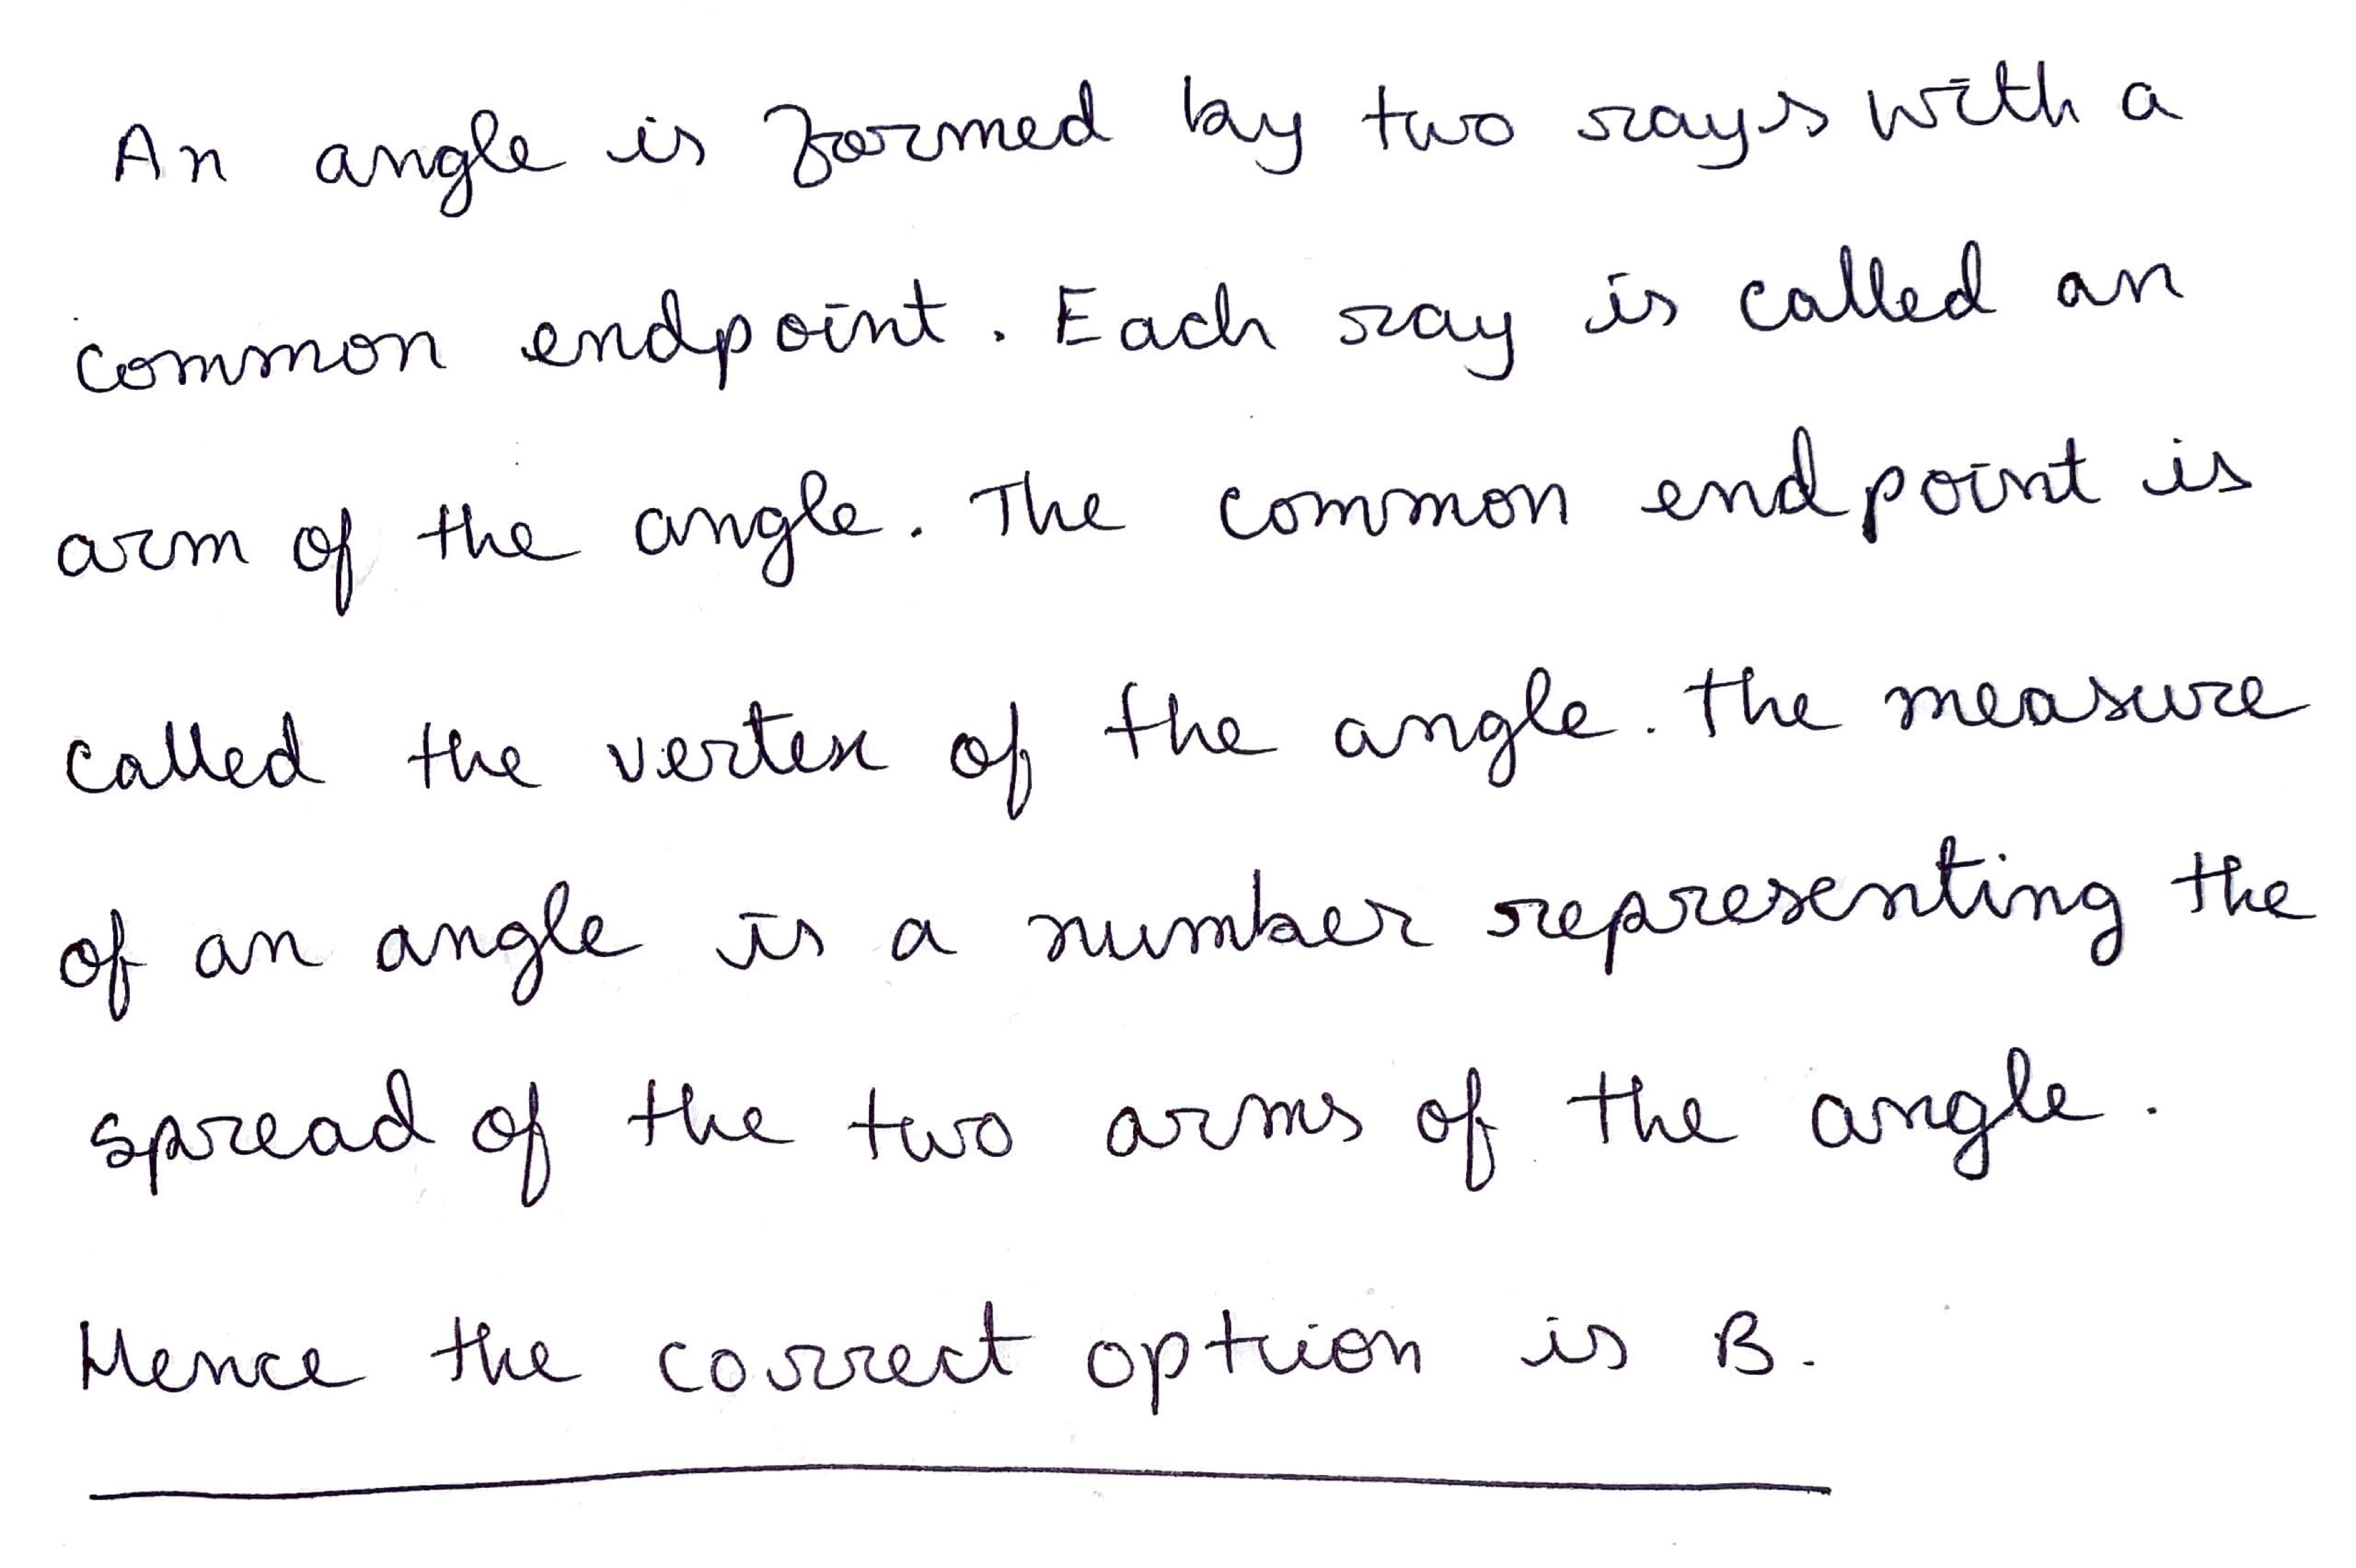 An angle is formed by two rays with a
common endpoint. Each ray is called an
arm of the angle. The common endpoint is
called the vertex of the angle. The measure
of an angle is a number representing the
spread of the two arms of the angle.
Hence the correct option is B.